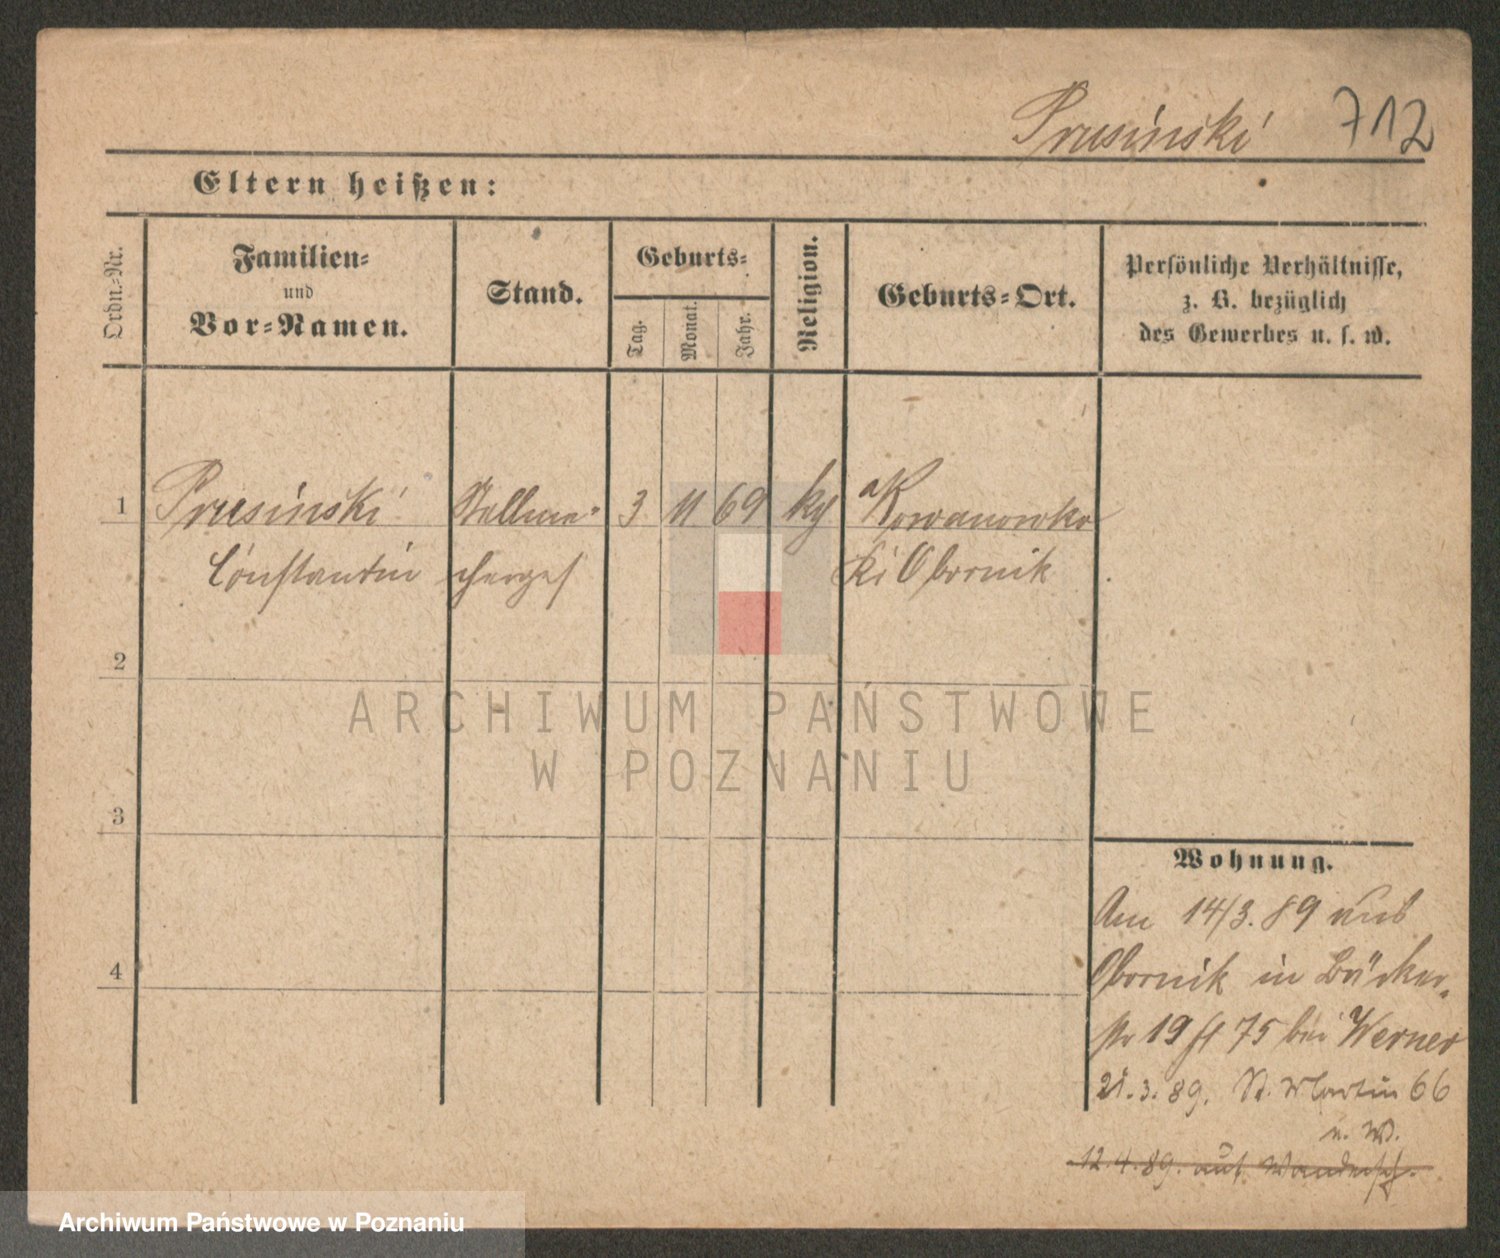 Prusinski 712
Eltern heißen:
Ordn.-Nr.
Familien-
und
Vor-Namen.
Stand.
Geburts-
Tag.
Monat.
Jahr.
Religion.
Geburts-Ort.
Persönliche Verhältnisse,
z. B. bezüglich
des Gewerbes u. s. w.
1 Prusinski Stellma- 3 11 69 Kowanowko
Constantin Obornik
2
3
4
ARCHIWUM PAŃSTWOWE
W POZNANIU
Wohnung.
Am 14/3.89 aus
Obornik in Bäcker-
str 19 75 bei Werner
21.3.89. St. Martin 66
u. W.
12.4.89. auf Wandersch.
Archiwum Państwowe w Poznaniu